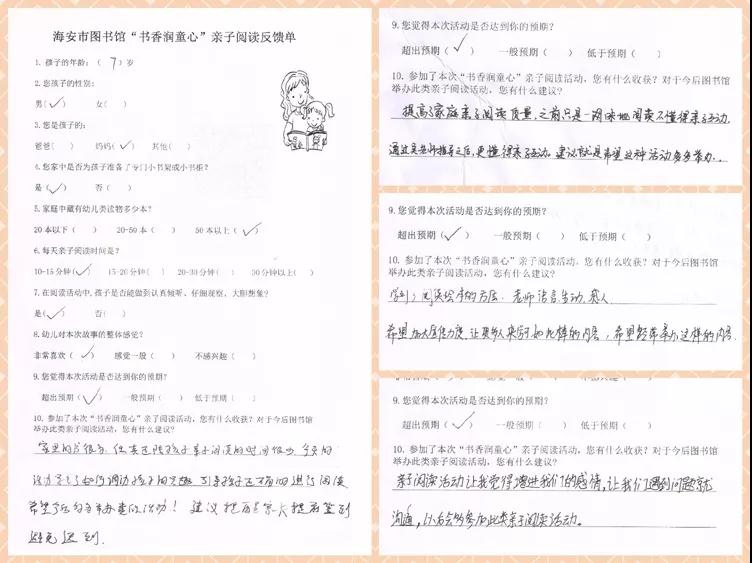 海安市图书馆“书香润童心”亲子阅读反馈单
1. 孩子的年龄：（ 7 ）岁
2. 您孩子的性别：
男（✓） 女（ ）
3. 您是孩子的：
爸爸（ ） 妈妈（✓） 其他（ ）
4. 您家中是否为孩子准备了专门小书架或小书柜？
是（✓） 否（ ）
5. 家庭中藏有幼儿类读物多少本？
20本以下（ ） 20-50本（ ） 50本以上（✓）
6. 每天亲子阅读时间是？
10-15分钟（✓） 15-20分钟（ ） 20-30分钟（ ） 30分钟以上（ ）
7. 在阅读活动中，孩子是否能做到认真倾听、仔细观察、大胆想象？
是（✓） 否（ ）
8. 幼儿对本次故事的整体感觉？
非常喜欢（✓） 感觉一般（ ） 不感兴趣（ ）
9. 您觉得本次活动是否达到你的预期？
超出预期（✓） 一般预期（ ） 低于预期（ ）
10. 参加了本次“书香润童心”亲子阅读活动，您有什么收获？对于今后图书馆
举办此类亲子阅读活动，您有什么建议？
家里的书很多，但真正陪孩子亲子阅读的时间很少，今天的
活动
希望今后多多举办类似活动！建议提醒家长提前签到
避免迟到.
9. 您觉得本次活动是否达到你的预期？
超出预期（✓） 一般预期（ ） 低于预期（ ）
10. 参加了本次“书香润童心”亲子阅读活动，您有什么收获？对于今后图书馆
举办此类亲子阅读活动，您有什么建议？
提高了家庭亲子阅读质量，之前只是一味地阅读不懂得亲子互动，
通过吴老师指导之后，更懂得亲子互动，建议就是希望这种活动多多举办..
9. 您觉得本次活动是否达到你的预期？
超出预期（✓） 一般预期（ ） 低于预期（ ）
10. 参加了本次“书香润童心”亲子阅读活动，您有什么收获？对于今后图书馆
举办此类亲子阅读活动，您有什么建议？
学到了阅读绘本的方法. 老师语言生动，感人.
希望加大宣传力度，让更多人来学习如此棒的内容，希望经常举办这样的内容.
9. 您觉得本次活动是否达到你的预期？
超出预期（✓） 一般预期（ ） 低于预期（ ）
10. 参加了本次“书香润童心”亲子阅读活动，您有什么收获？对于今后图书馆
举办此类亲子阅读活动，您有什么建议？
亲子阅读活动让我觉得增进我们的感情，让我们遇到问题就
沟通，以后会多参加此类亲子阅读活动。